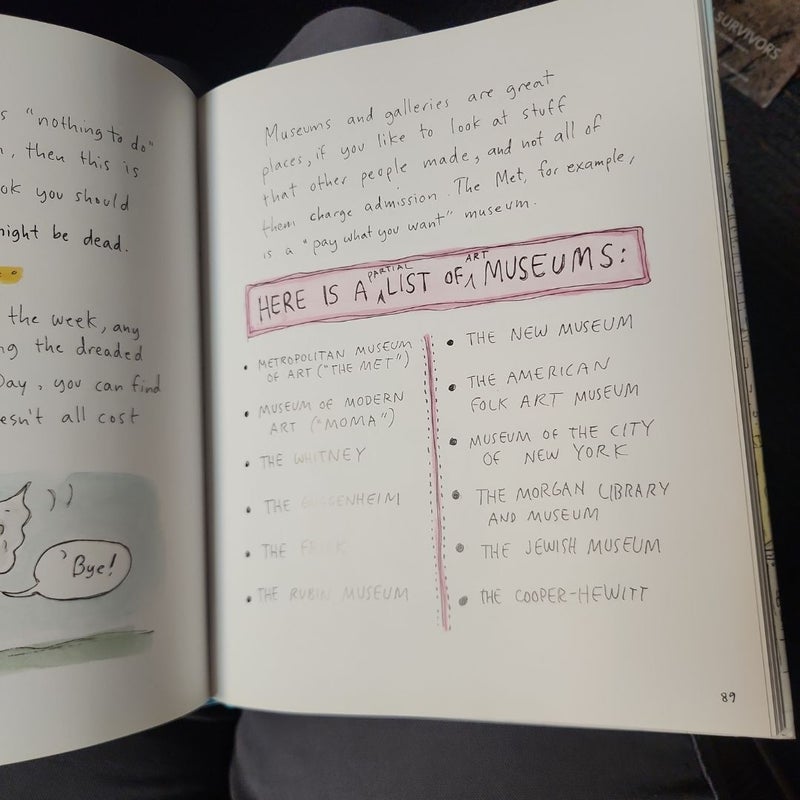 s "nothing to do"
, then this is
ok you should
ight be dead.
the week, any
ng the dreaded
Day, you can find
esn't all cost
'Bye!
Museums and galleries are great
places, if you like to look at stuff
that other people made, and not all of
them charge admission. The Met, for example,
is a "pay what you want" museum.
HERE IS A PARTIAL LIST OF ART MUSEUMS:
• METROPOLITAN MUSEUM
OF ART ("THE MET")
• MUSEUM OF MODERN
ART ("MOMA")
• THE WHITNEY
• THE GUGGENHEIM
• THE FRICK
• THE RUBIN MUSEUM
• THE NEW MUSEUM
• THE AMERICAN
FOLK ART MUSEUM
• MUSEUM OF THE CITY
OF NEW YORK
• THE MORGAN LIBRARY
AND MUSEUM
• THE JEWISH MUSEUM
• THE COOPER-HEWITT
89
SURVIVORS